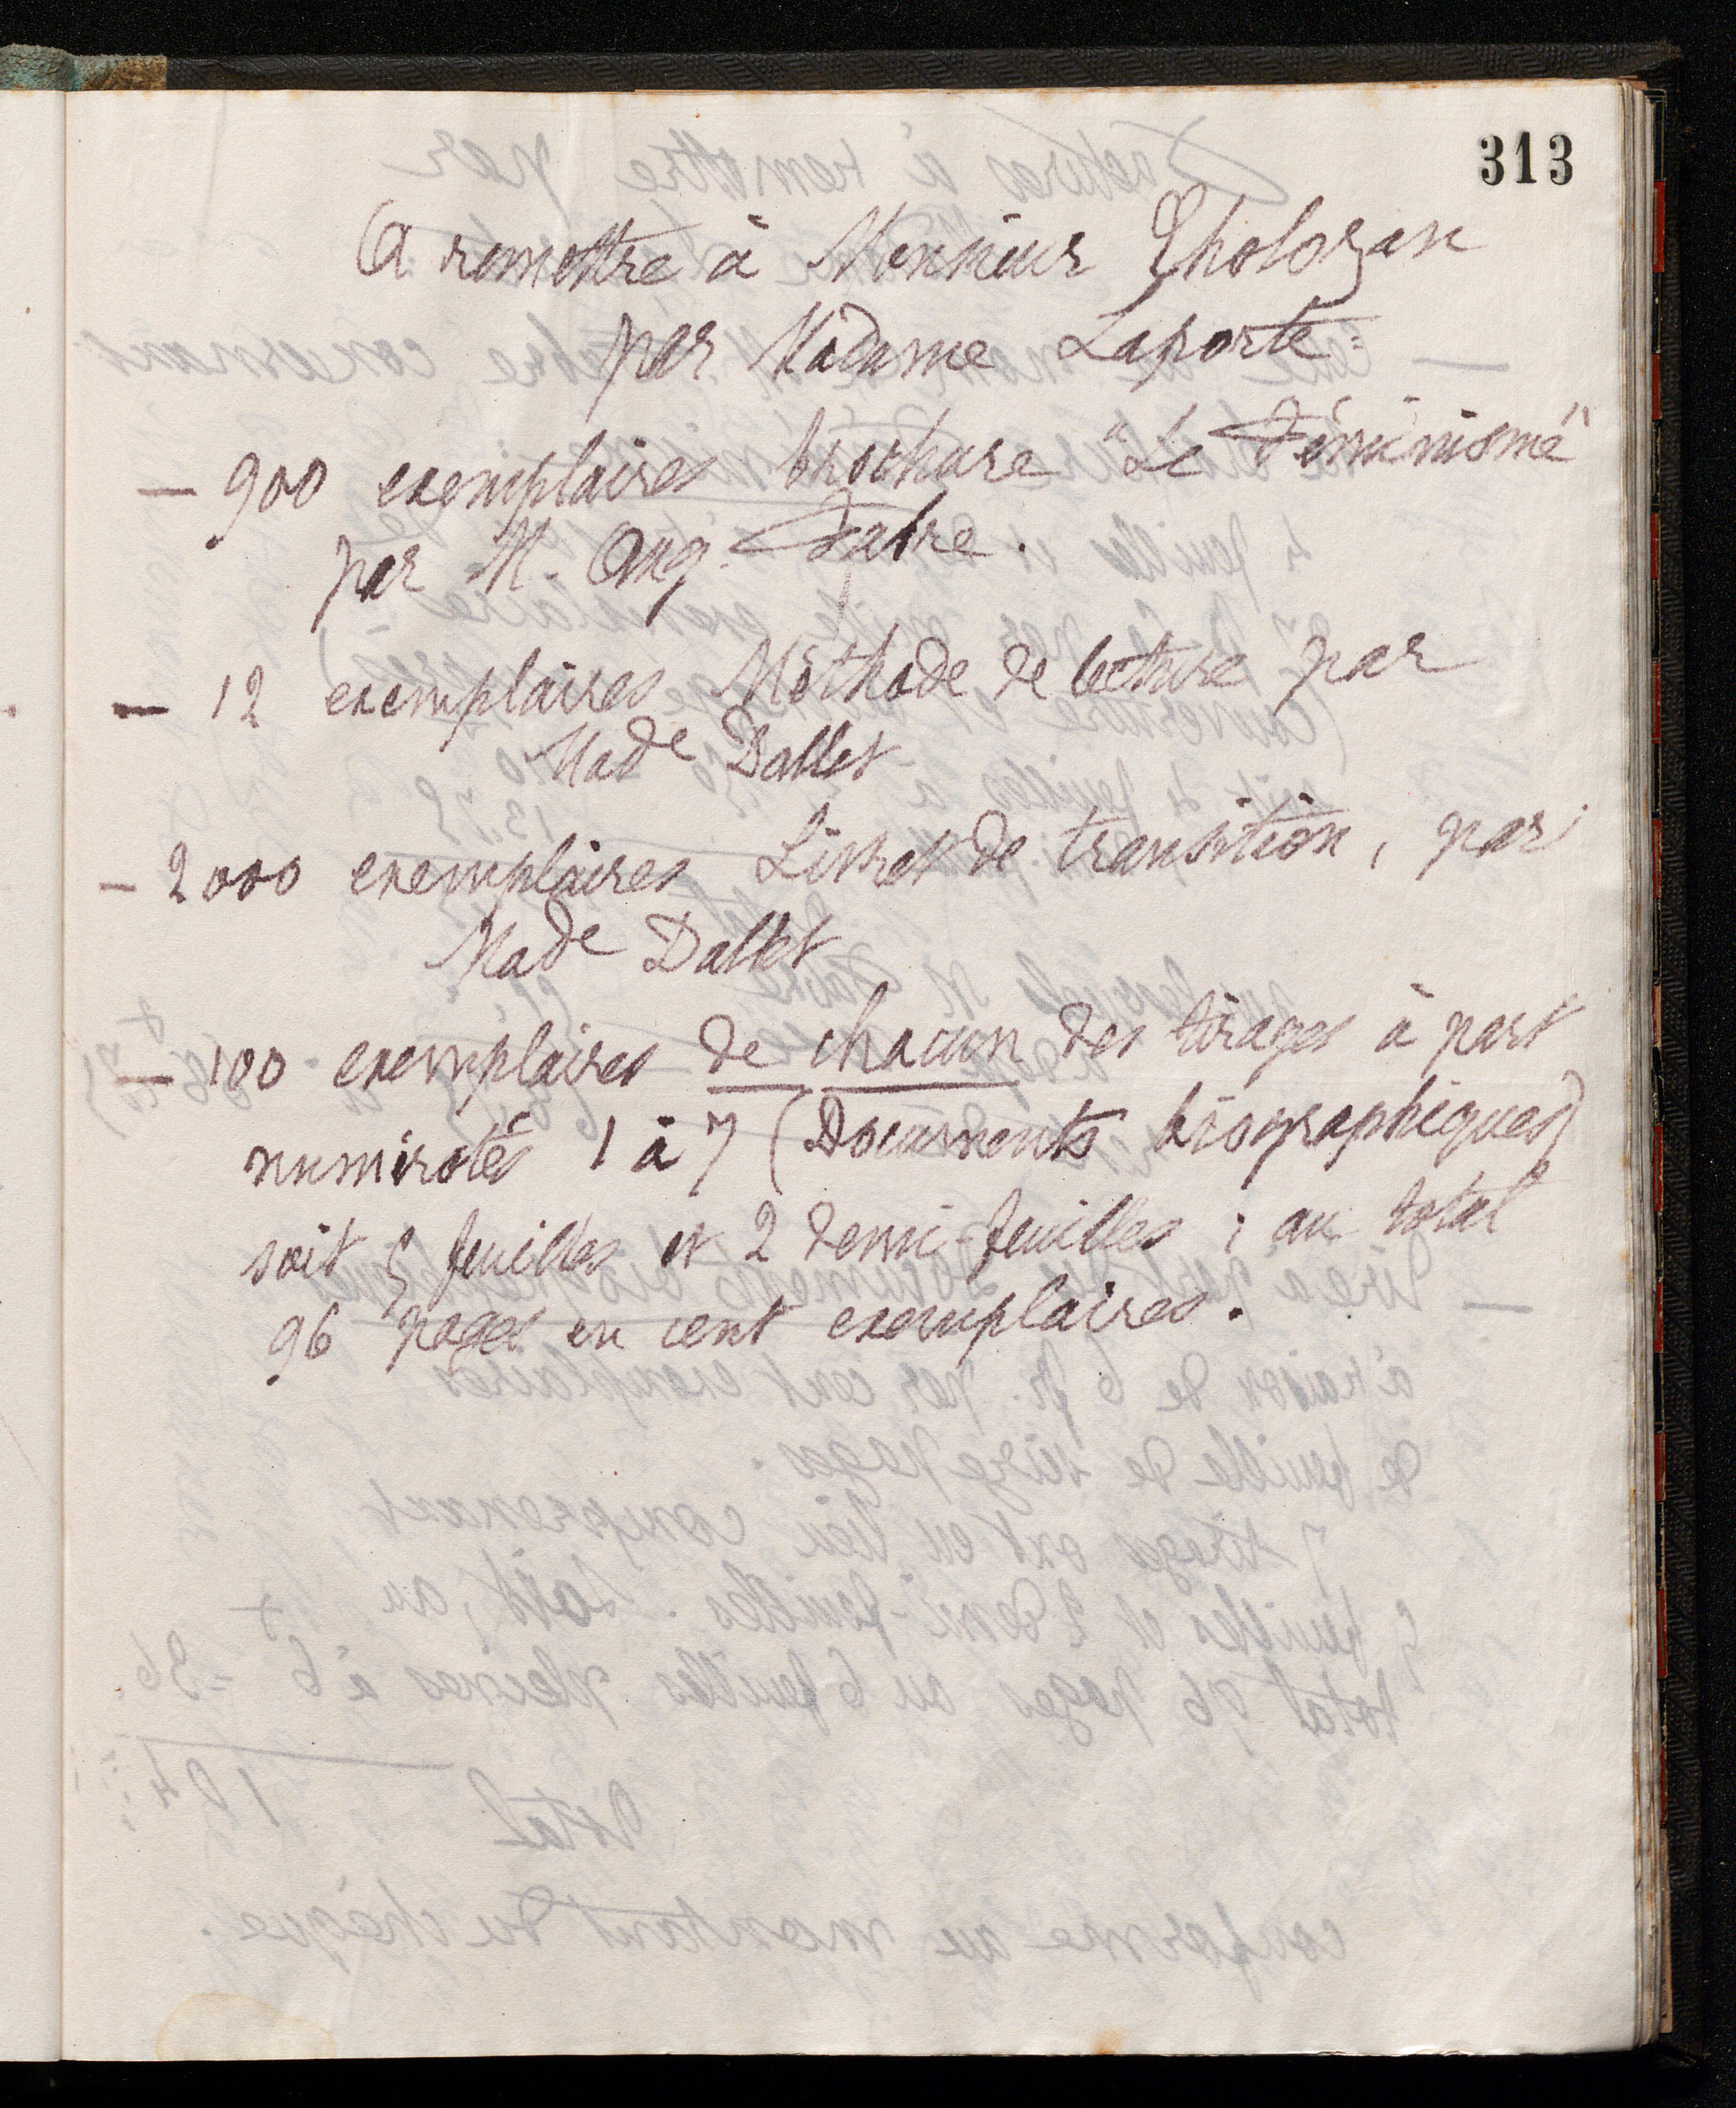 313
A remettre à Monsieur Tholozan
par Madame Laporte :
— 900 exemplaires brochure "Le Féminisme"
par M. Aug. Fabre.
— 12 exemplaires Méthode de lecture par
Made Dallet
— 2000 exemplaires Livret de transition, par
Made Dallet
— 100 exemplaires de chacun des tirages à part
numérotés 1 à 7 (Documents biographiques)
soit 5 feuilles et 2 demi-feuilles ; au total
96 pages en cent exemplaires.